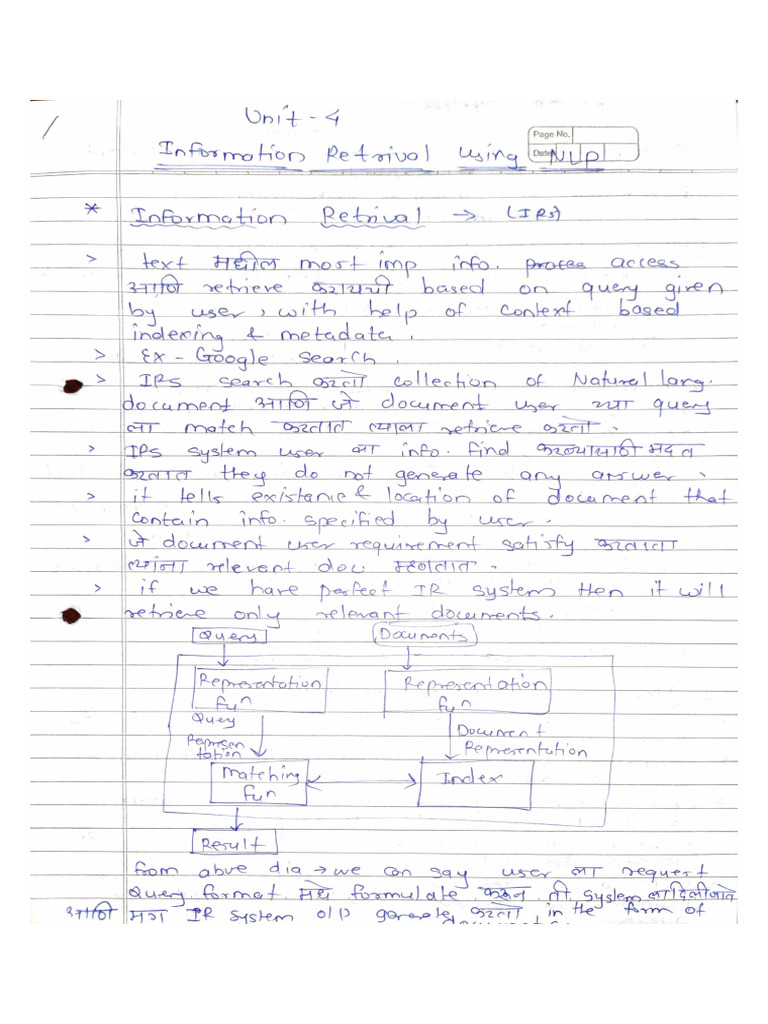 Unit - 4
Page No.
Information Retrival using NLP
Date
* Information Retrival → (IRS)
> text मधील most imp info. access
आणि retrieve करायची based on query given
by user, with help of context based
indexing & metadata.
> Ex - Google Search.
> IRS search करतो collection of Natural lang.
document आणि जे document user च्या query
ला match करतात त्याला retrieve करतो.
> IRS system user ला info. find करण्यासाठी मदत
करतात they do not generate any answer.
> it tells existanie & location of document that
contain info. specified by user.
> जे document user requirement satisfy करतात
त्यांना relevant doc म्हणतात.
> if we have perfect IR system then it will
retrieve only relevant documents.
Query Documents
Representation fun Representation fun
Query Representation Document Representation
Matching fun Index
Result
from abve dia → we can say user ला request
Query format मधे formulate करून ती system ला दिली जाते
आणि मग IR system o/p generate करतो in the form of